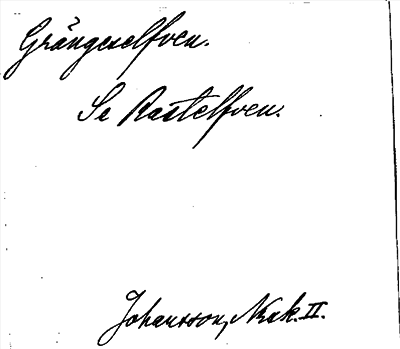 Grängeselfven.
Se Rastelfven.
Johansson, Nkk. II.